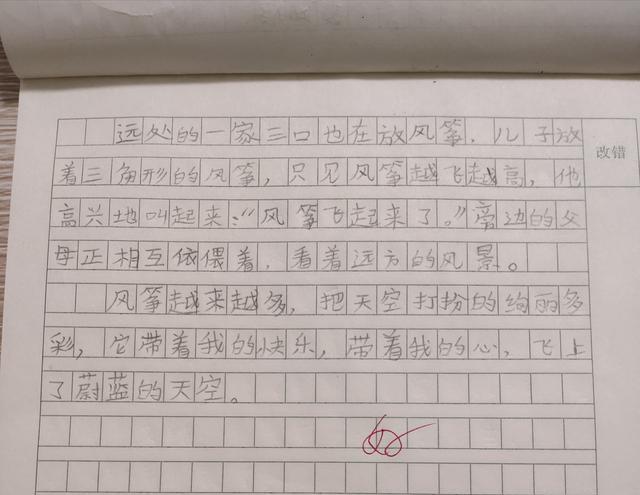 远处的一家三口也在放风筝，儿子放
改错
着三角形的风筝，只见风筝越飞越高，他
高兴地叫起来：“风筝飞起来了。”旁边的父
母正相互依偎着，看着远方的风景。
风筝越来越多，把天空打扮的绚丽多
彩，它带着我的快乐，带着我的心，飞上
了蔚蓝的天空。